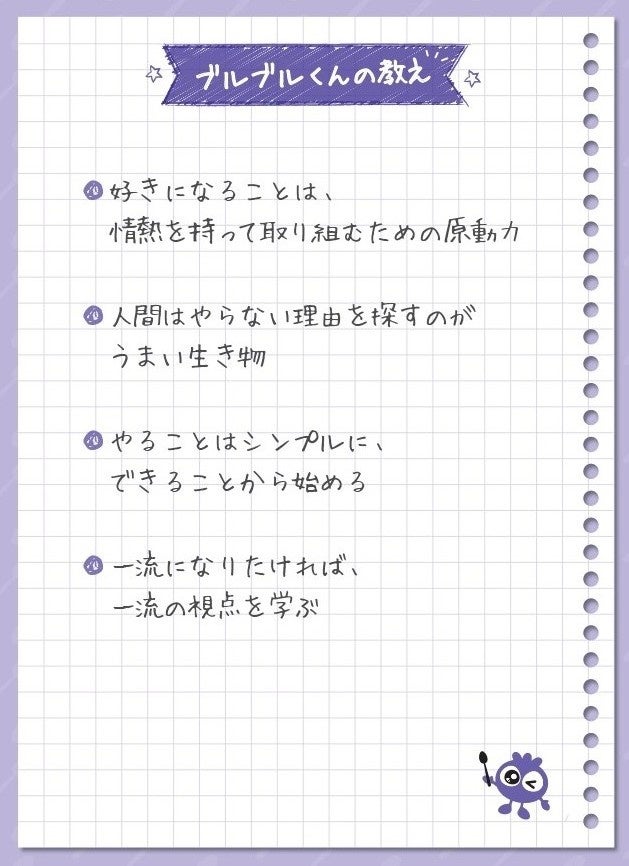 ブルブルくんの教え
好きになることは、
情熱を持って取り組むための原動力
人間はやらない理由を探すのが
うまい生き物
やることはシンプルに、
できることから始める
一流になりたければ、
一流の視点を学ぶ